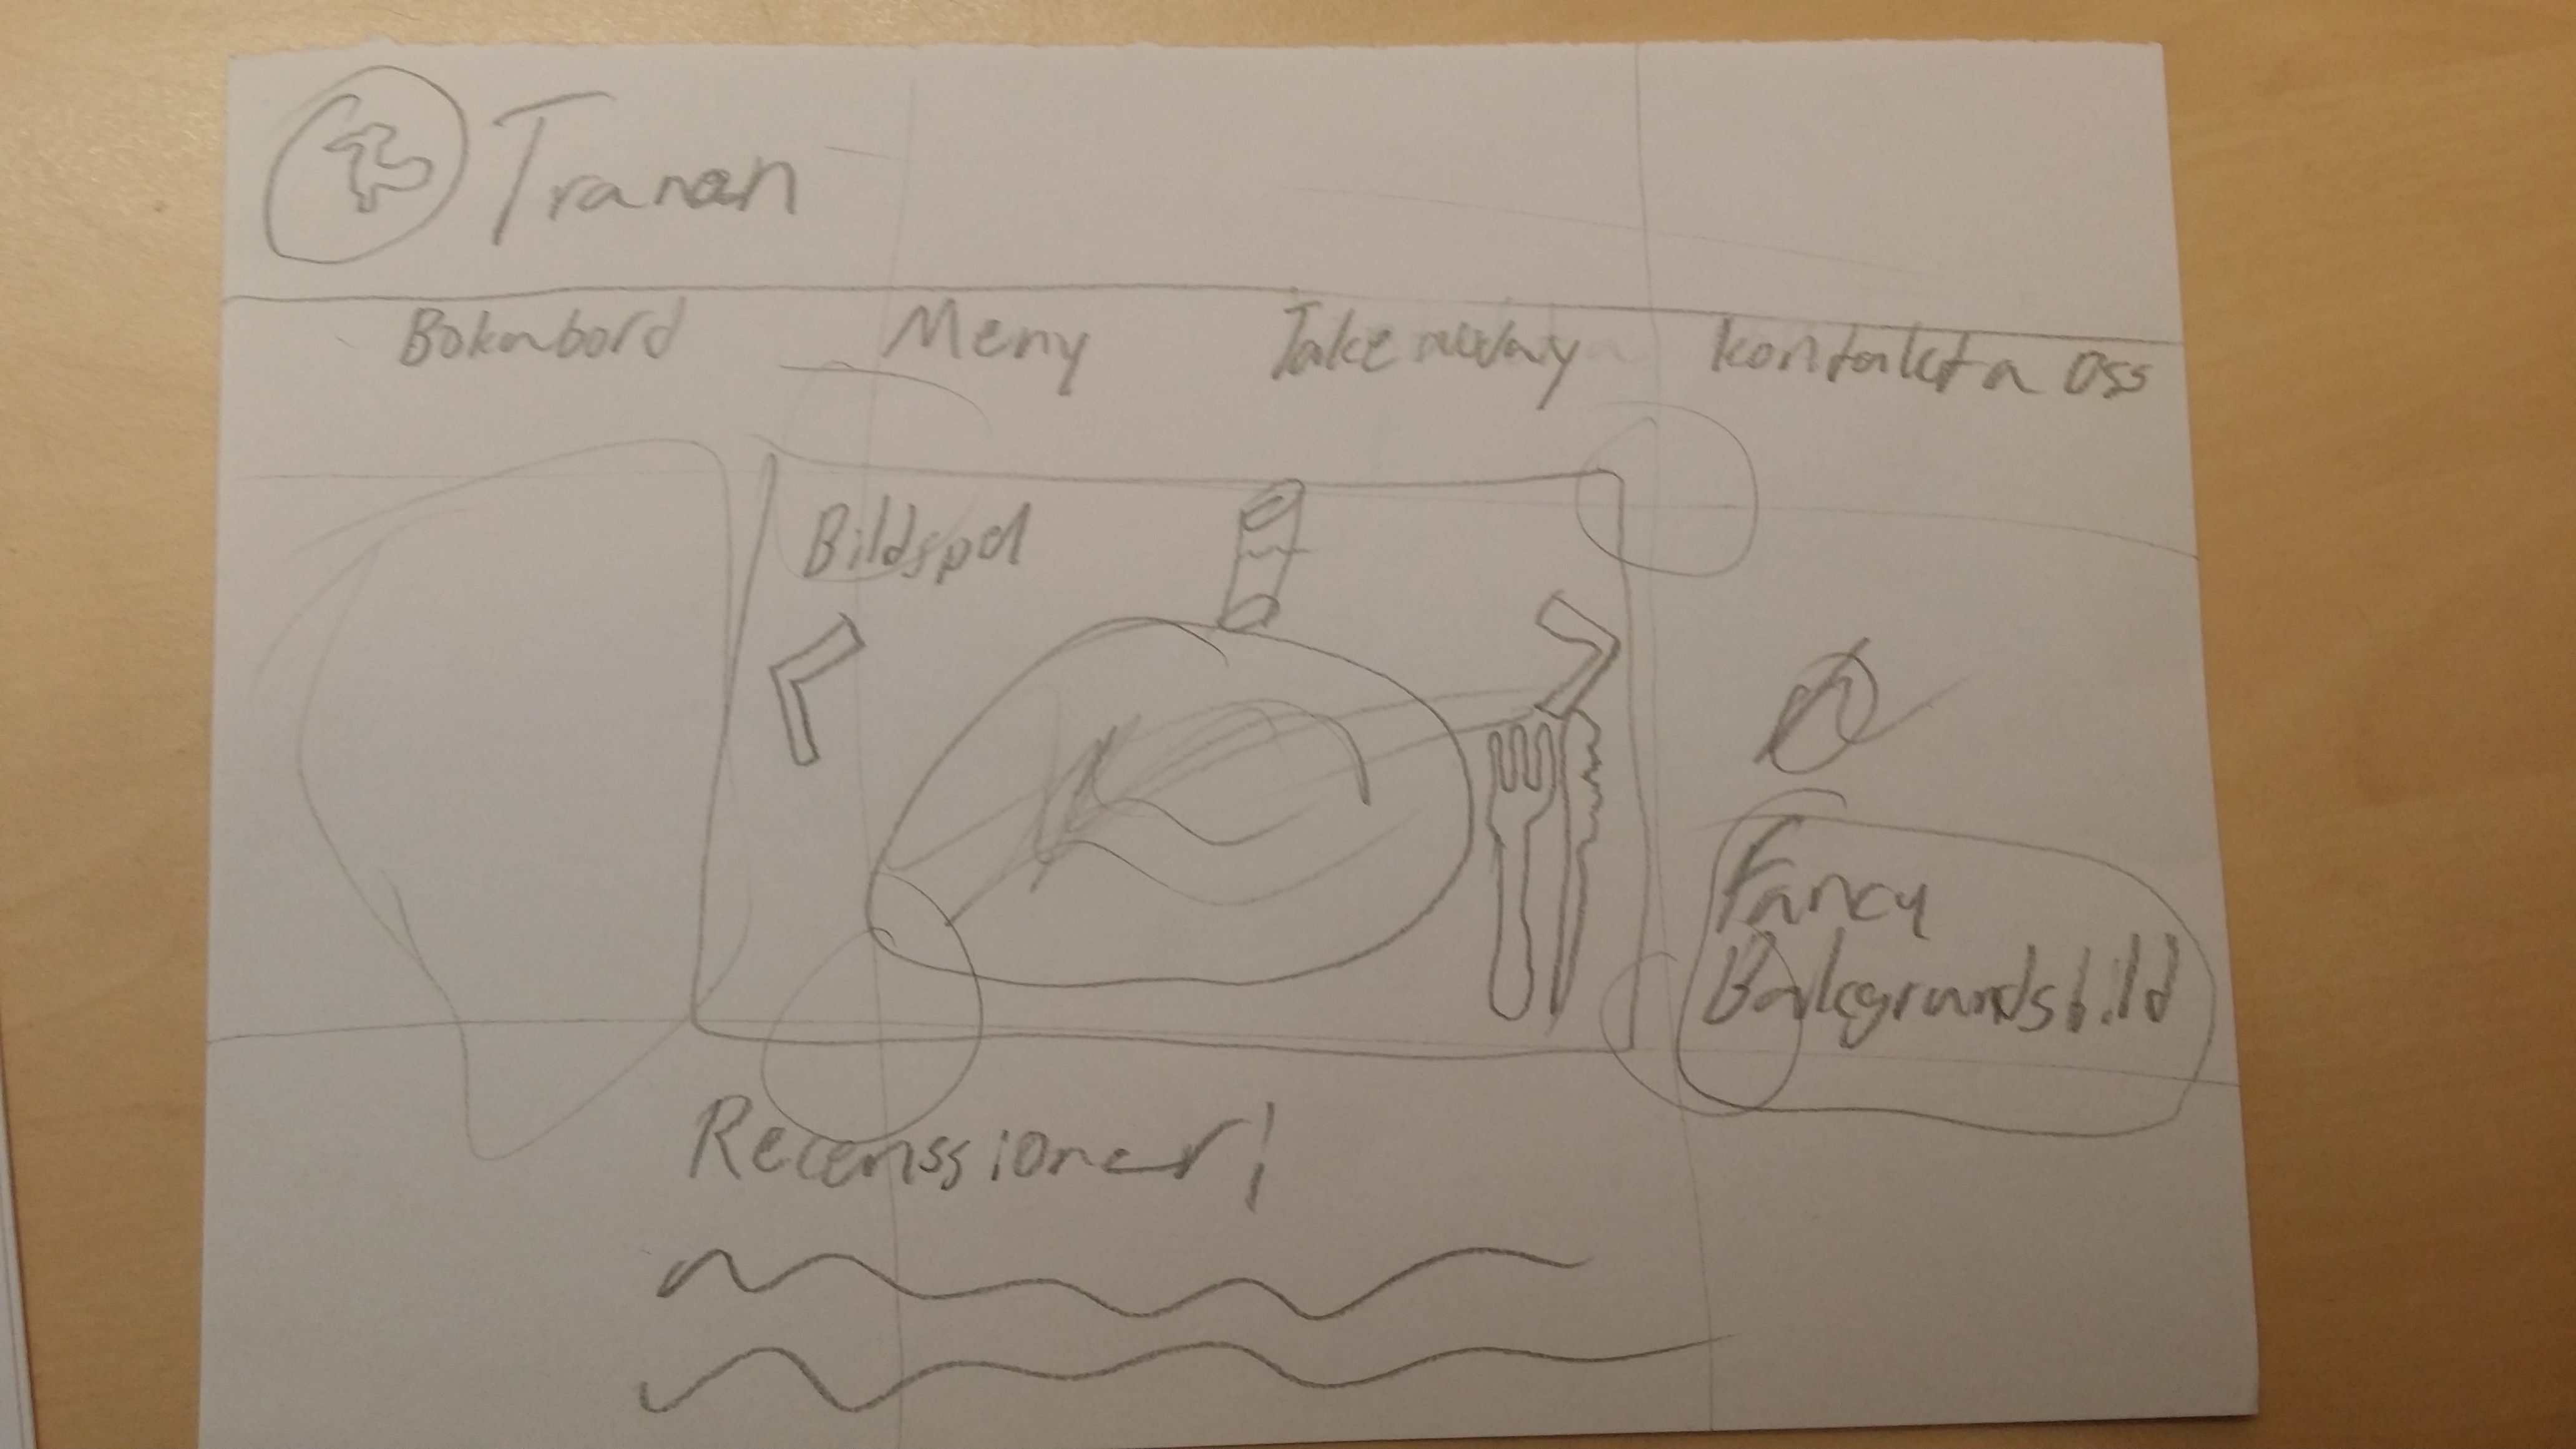 Tranan
Bokabord
Meny
Take away
kontakta oss
Bildspel
Fancy
Bakgrundsbild
Recenssioner!